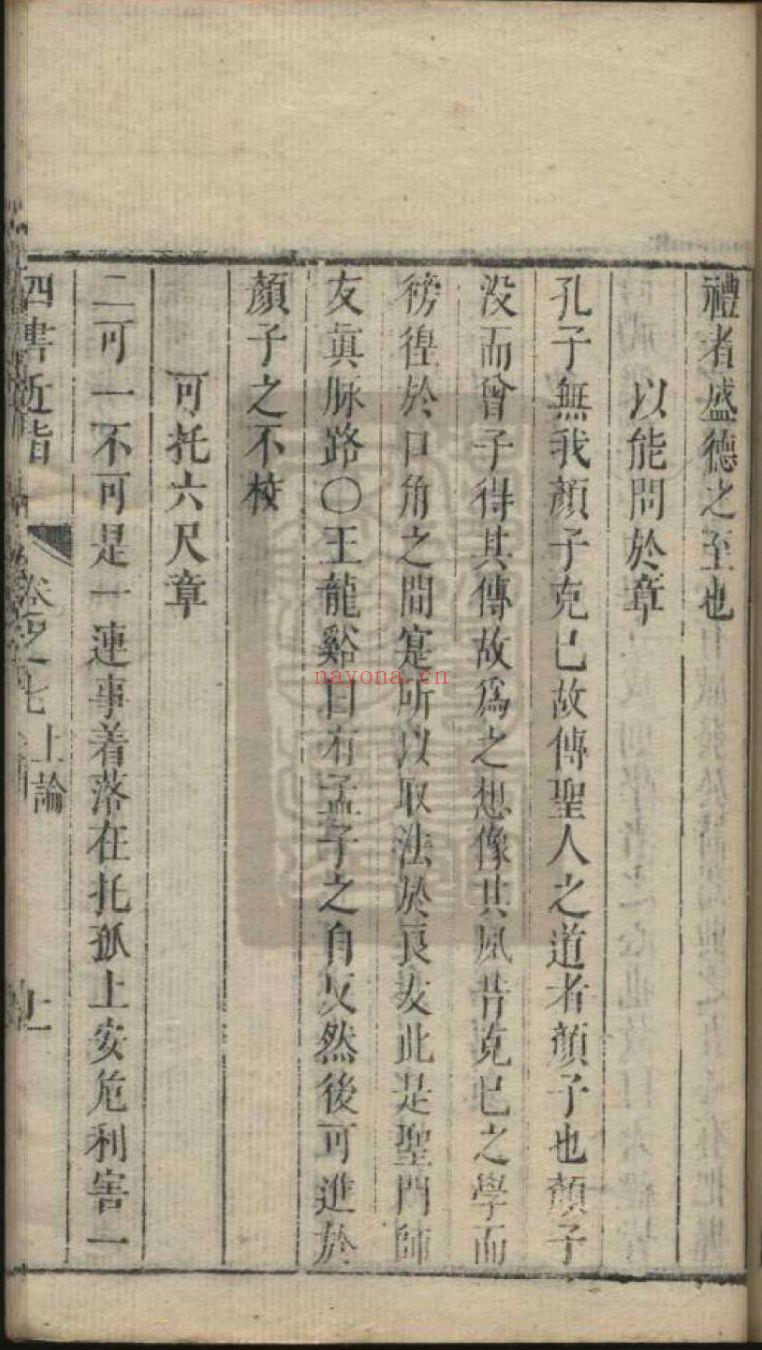 禮者盛德之至也
以能問於章
孔子無我顏子克已故傳聖人之道者顏子也顏子
没而曾子得其傳故爲之想像其夙昔克已之學而
徬徨於口角之間寔所以取法於良友此是聖門師
友真脉路○王龍谿曰有孟子之自反然後可進於
顏子之不校
可托六尺章
二可一不可是一連事着落在托孤上安危利害一
四書近指
卷之七
上論
nayona.cn